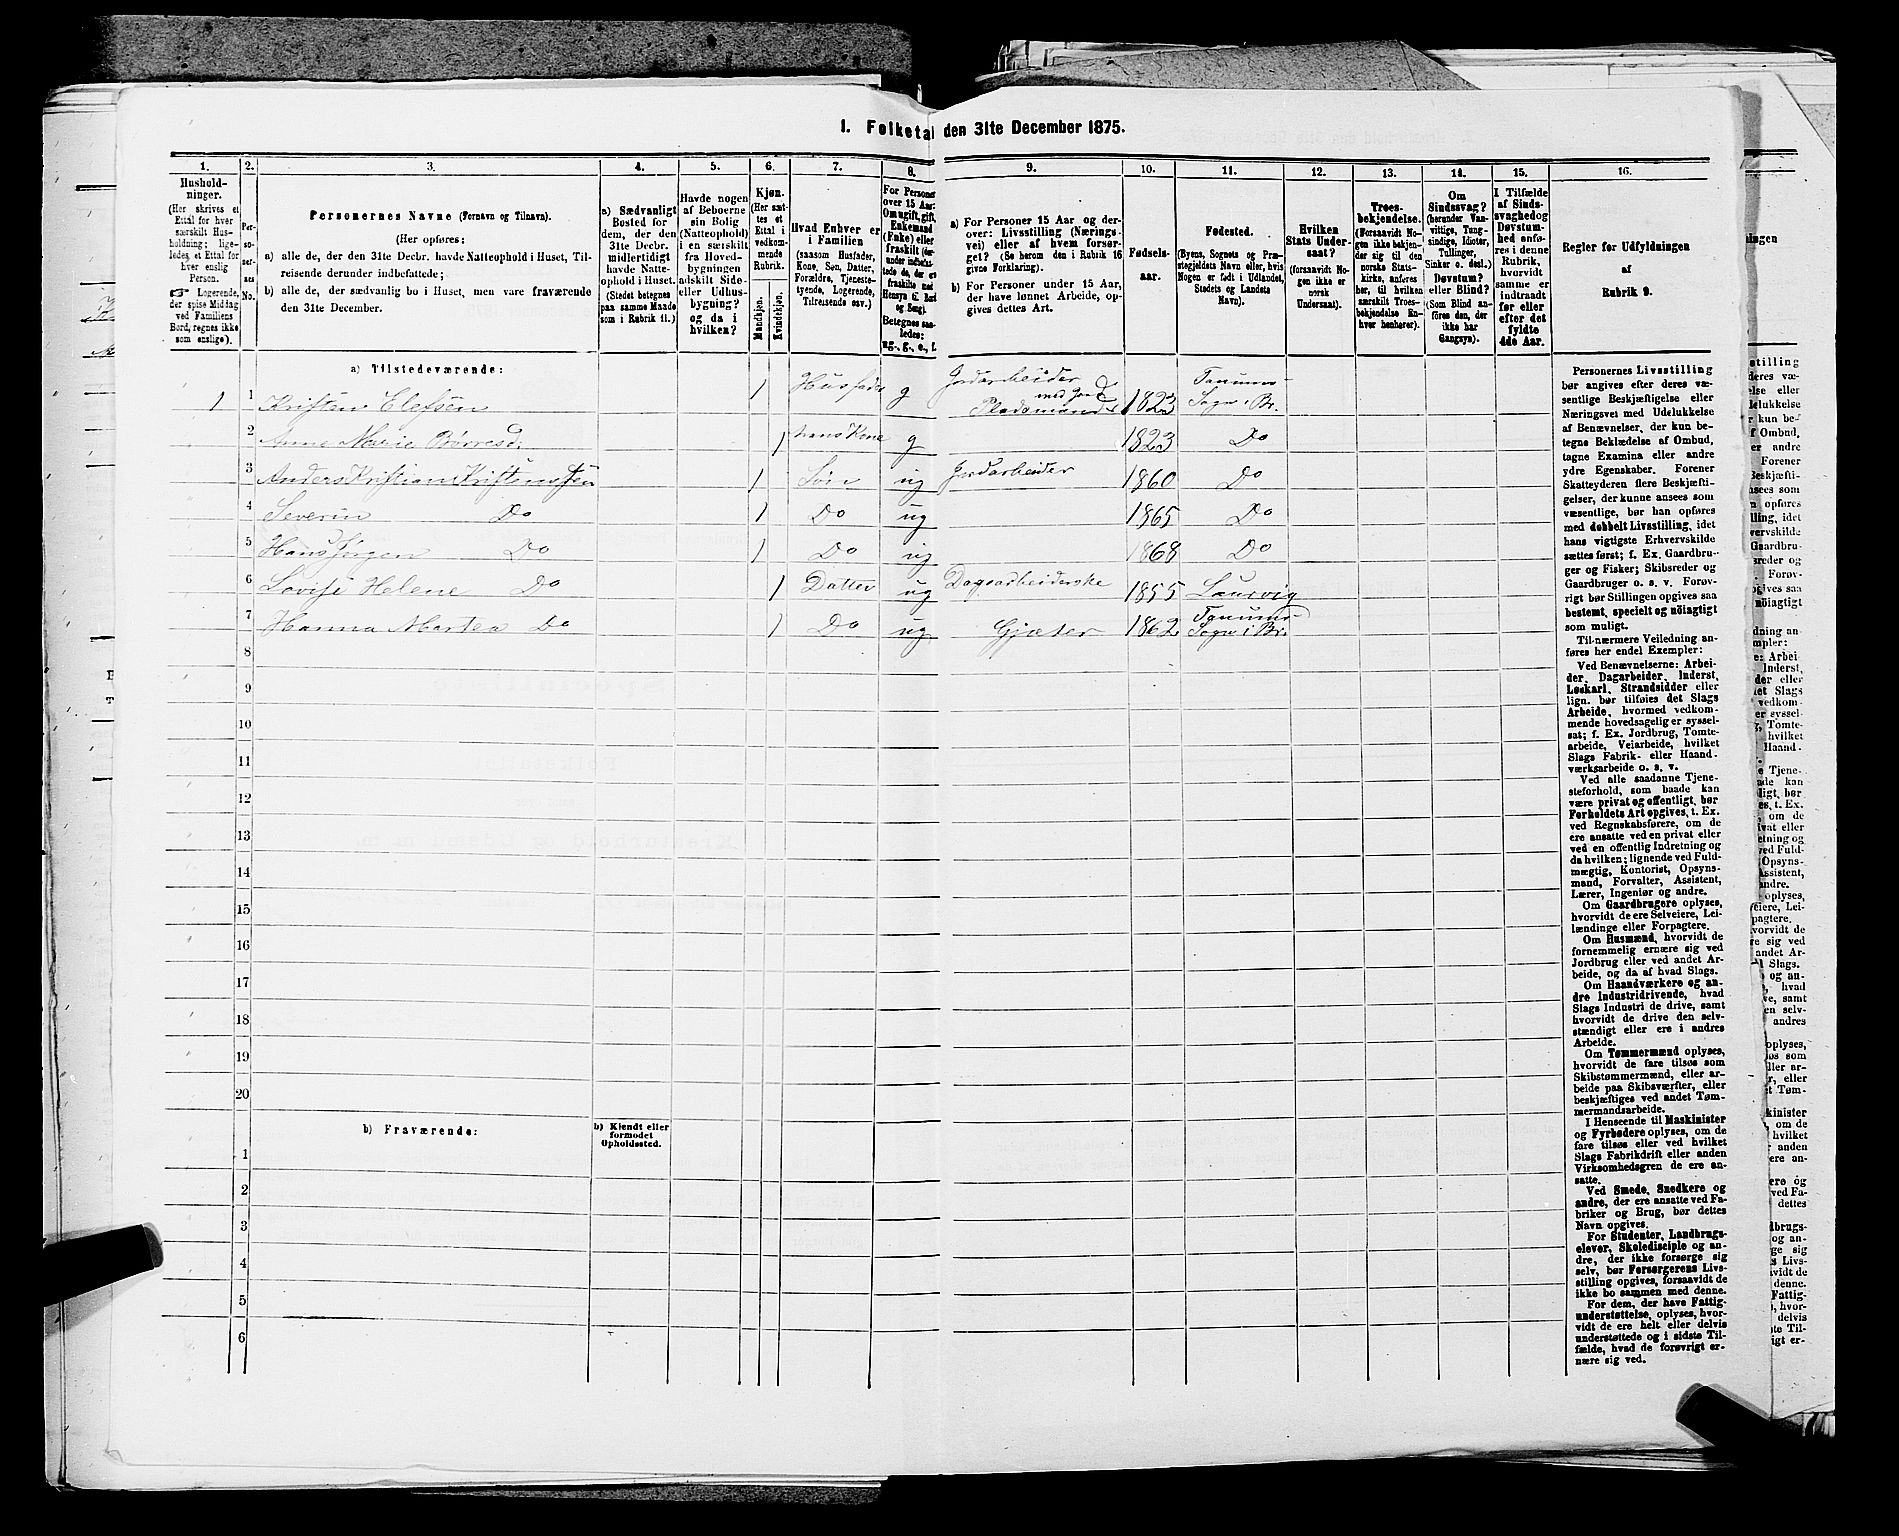 I. Folketal den 31te December 1875.
1. 2. 3. 4. 5. 6. 7. 8. 9. 10. 11. 12. 13. 14. 15. 16.
Hushold-
ninger.
(Her skrives et
Ettal for hver
særskilt Hus-
holdning; lige-
ledes et Ettal for
hver enslig
Person.
☞ Logerende,
der spise Middag
ved Familiens
Bord, regnes ikke
som enslige).
Per-
so-
ner-
nes
No.
Personernes Navne (Fornavn og Tilnavn).
(Her opføres:
a) alle de, der den 31te Decbr. havde Natteophold i Huset, Til-
reisende derunder indbefattede;
b) alle de, der sædvanlig bo i Huset, men vare fraværende
den 31te December.
a) Sædvanligt
Bosted for
dem, der den
31te Decbr.
midlertidigt
havde Natte-
ophold i Huset.
(Stedet betegnes
paa samme Maade
som i Rubrik 11.)
Havde nogen
af Beboerne
sin Bolig
(Natteophold)
i en særskilt
fra Hoved-
bygningen
adskilt Side-
eller Udhus-
bygning?
og da i
hvilken?
Kjøn.
(Her sæt-
tes et
Ettal i
vedkom-
mende
Rubrik.
Mandkjøn.
Kvindekjøn.
Hvad Enhver er
i Familien
(saasom Husfader,
Kone, Søn, Datter,
Forældre, Tjeneste-
tyende, Logerende,
Tilreisende osv.)
For Personer
over 15 Aar:
Om ugift, gift,
Enkemand
(Enke) eller
fraskilt (der-
under indbefat-
tede de, der ere
fraskilte med
Hensyn til Bord
og Seng).
Betegnes saa-
ledes:
ug., g., e., f.
a) For Personer 15 Aar og der-
over: Livsstilling (Nærings-
vei) eller af hvem forsør-
get? (Se herom den i Rubrik 16
givne Forklaring).
b) For Personer under 15 Aar,
der have lønnet Arbeide, op-
gives dettes Art.
Fødsels-
aar.
Fødested.
(Byens, Sognets og Præ-
stegjeldets Navn eller, hvis
Nogen er født i Udlandet,
Stedets og Landets
Navn).
Hvilken
Stats Under-
saat?
(forsaavidt No-
gen ikke er
norsk
Undersaat).
Troes-
bekjendelse.
(Forsaavidt No-
gen ikke bekjen-
der sig til den
norske Stats-
kirke, anføres
her, til hvilken
særskilt Troes-
bekjendelse En-
hver henhører).
Om
Sindssvag?
(herunder Van-
vittige, Tung-
sindige, Idioter,
Tullinger,
Sinker o. desl.)
Døvstum?
eller Blind?
(Som Blind an-
føres den, der
ikke har
Gangsyn).
I Tilfælde
af Sinds-
svaghed og
Døvstum-
hed anfø-
res i denne
Rubrik,
hvorvidt
samme er
indtraadt
før eller
efter det
fyldte
4de Aar.
Regler for Udfyldningen
af
Rubrik 9.
a) Tilstedeværende:
1 1 Kristen Elefsen 1 Husfader g Jordarbeider med Jord Pladsmand 1823 Tanums Sogn i Br.
2 Anne Marie Børresd: 1 hans Kone g 1823 Do
3 Anders Kristian Kristenssen 1 Søn ug Jordarbeider 1860 Do
4 Severin Do 1 Do ug 1865 Do
5 Hans Jørgen Do 1 Do ug 1868 Do
6 Lovise Helene Do 1 Datter ug Dagsarbeiderske 1855 Laurvig
7 Hanna Martea Do 1 Do ug Gjæter 1862 Tanums Sogn i Br.
8
9
10
11
12
13
14
15
16
17
18
19
20
b) Fraværende:
b) Kjendt eller
formodet
Opholdssted.
1
2
3
4
5
6
Personernes Livsstilling
bør angives efter deres væ-
sentlige Beskjæftigelse eller
Næringsvei med Udelukkelse
af Benævnelser, der kun be-
tegne Beklædelse af Ombud,
tagne Examina eller andre
ydre Egenskaber. Forener
Skatteyderen flere Beskjæfti-
gelser, der kunne ansees som
væsentlige, bør han opføres
med dobbelt Livsstilling, idet
hans vigtigste Erhvervskilde
sættes først; f. Ex. Gaardbru-
ger og Fisker; Skibsreder og
Gaardbruger o. s. v. Forøv-
rigt bør Stillingen opgives saa
bestemt, specielt og nöiagtigt
som muligt.
Til nærmere Veiledning an-
føres her endel Exempler:
Ved Benævnelserne: Arbei-
der, Dagarbeider, Inderst,
Løskarl, Strandsidder eller
lign. bør tilføies det Slags
Arbeide, hvormed vedkom-
mende hovedsagelig er syssel-
sat; f. Ex. Jordbrug, Tomte-
arbeide, Veiarbeide, hvilket
Slags Fabrik- eller Haand-
værksarbeide o. s. v.
Ved alle saadanne Tjene-
steforhold, som baade kan
være privat og offentligt, bør
Forholdets Art opgives, t. Ex.
ved Regnskabsførere, om de
ere ansatte ved en privat eller
ved en offentlig Indretning og
da hvilken; lignende ved Fuld-
mægtig, Kontorist, Opsyns-
mand, Forvalter, Assistent,
Lærer, Ingeniør og andre.
Om Gaardbrugere oplyses,
hvorvidt de ere Selveiere, Lei-
lændinge eller Forpagtere.
Om Husmænd, hvorvidt de
fornemmelig ernære sig ved
Jordbrug eller ved andet Ar-
beide, og da af hvad Slags.
Om Haandværkere og an-
dre Industridrivende, hvad
Slags Industri de drive, samt
hvorvidt de drive den selv-
stændigt eller ere i andres
Arbeide.
Om Tømmermænd oplyses,
hvorvidt de fare tilsøs som
Skibstømmermænd, eller ar-
beide paa Skibsværfter, eller
beskjæftiges ved andet Tøm-
mermandsarbeide.
I Henseende til Maskinister
og Fyrbødere oplyses, om de
fare tilsøs eller ved hvilket
Slags Fabrikdrift eller anden
Virksomhedsgren de ere an-
satte.
Ved Smede, Snedkere og
andre, der ere ansatte ved Fa-
briker og Brug, bør dettes
Navn opgives.
For Studenter, Landbrugs-
elever, Skoledisciple og an-
dre, der ikke forsørge sig
selv, bør Forsørgerens Livs-
stilling opgives, forsaavidt de
ikke bo sammen med denne.
For dem, der have Fattig-
understøttelse, oplyses, hvor-
vidt de ere helt eller delvis
understøttede og i sidste Til-
fælde, hvad de forøvrigt er-
nære sig ved.